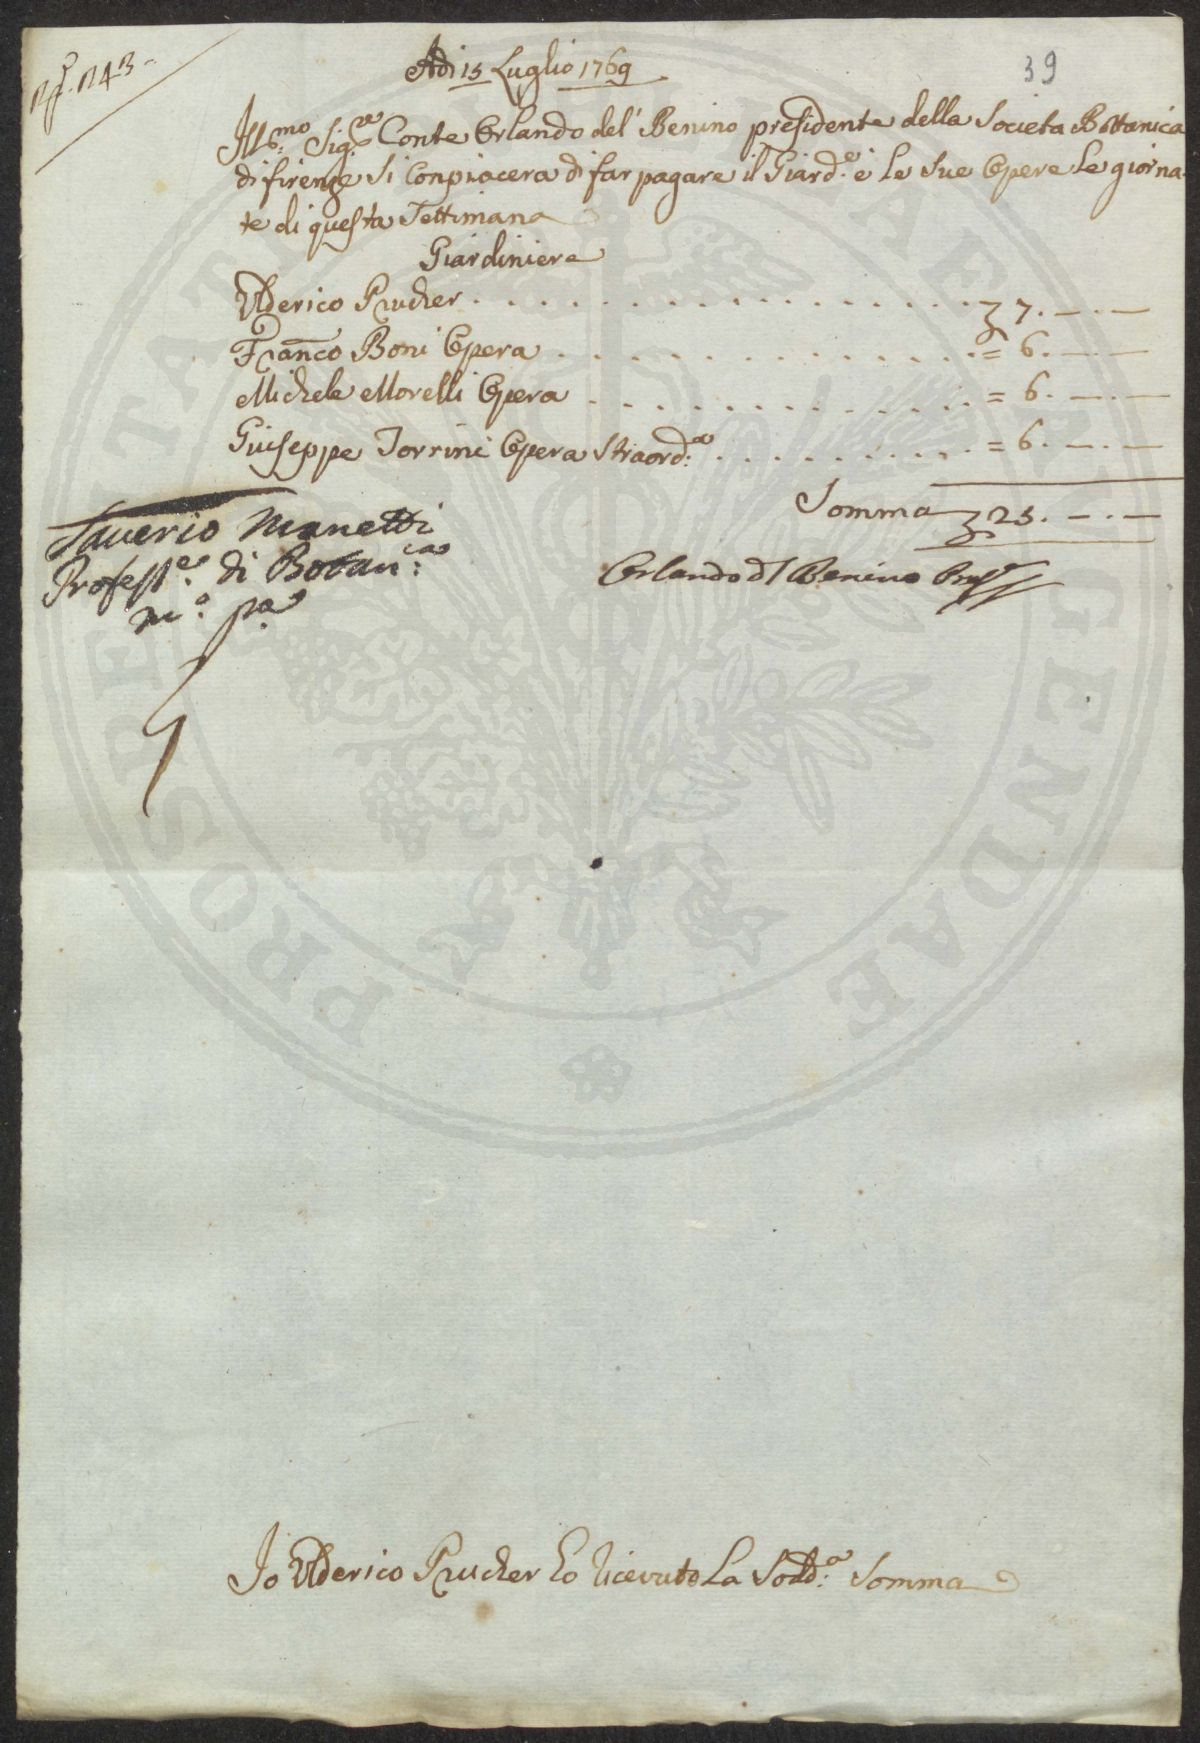 N.º 1743.
Adi 15 Luglio 1769
39
Ill:mo Sig:re Conte Orlando del' Benino presidente della Societa Bottanica
di firenze si Conpiacera di far pagare il Giard:e e le sue Opere le giorna-
te di questa Settimana
Giardiniere
Ulderico Prucher . . . . . . . . . . . . . . . . . 7. — . —
Franco Boni Opera . . . . . . . . . . . . . . = 6. — . —
Michele Morelli Opera . . . . . . . . . . . . = 6. — . —
Giuseppe Torrini Opera Straord:a . . . . . . . . . = 6. — . —
Somma 25. — . —
Saverio Manetti
Profess:e di Botan:ca
m:o p:a
Orlando dl Benino Pres:e
Io Ulderico Prucher Eo Ricevuto La Sodd:a Somma
PROSPERITATI PUBLICAE AUGENDAE